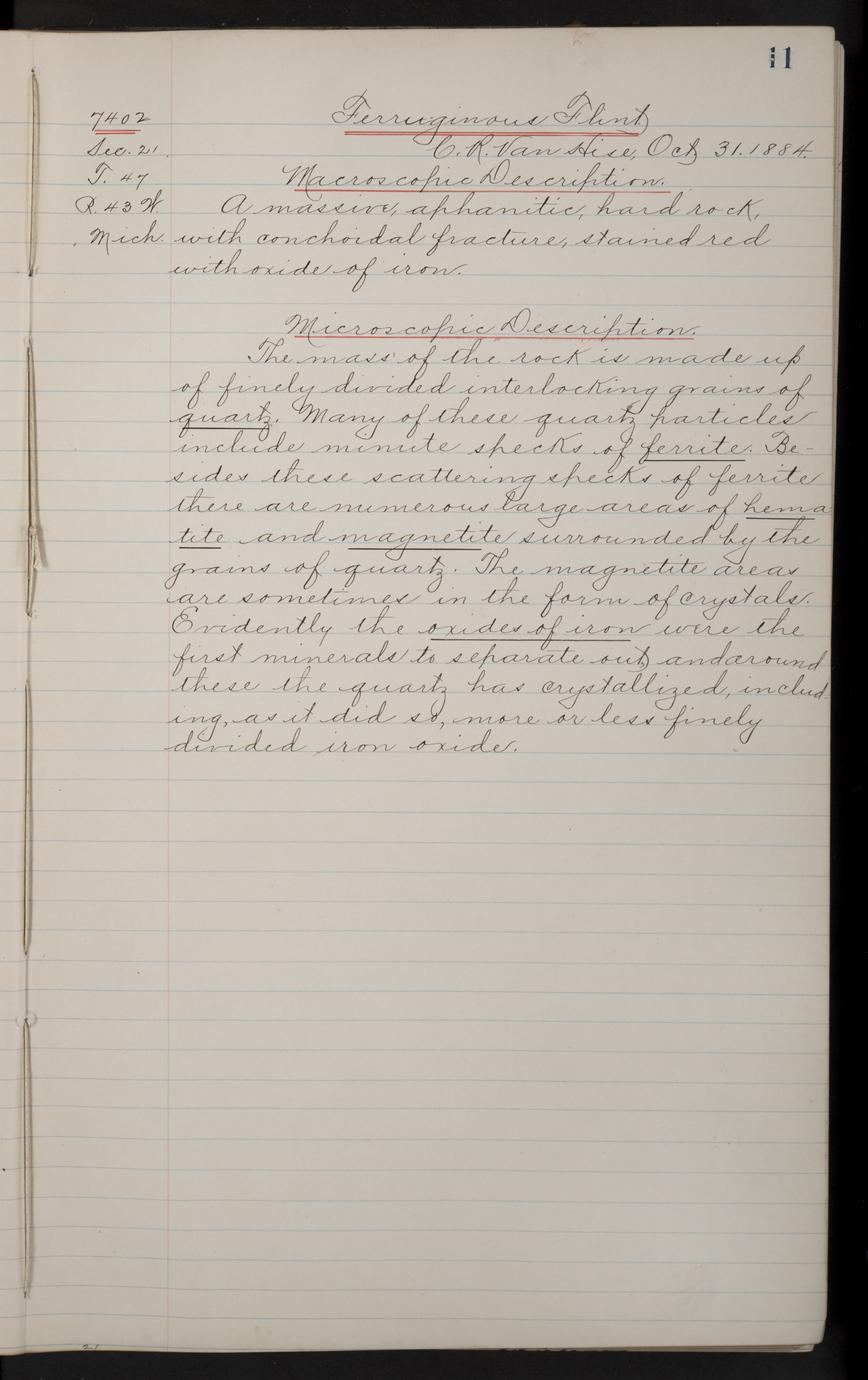 11
7402
Sec. 21.
T. 47
R. 43 W.
Mich.
Ferruginous Flint
C. R. Van Hise, Oct. 31. 1884.
Macroscopic Description.
A massive, aphanitic, hard rock,
with conchoidal fracture, stained red
with oxide of iron.
Microscopic Description.
The mass of the rock is made up
of finely divided interlocking grains of
quartz. Many of these quartz particles
include minute specks of ferrite. Be-
sides these scattering specks of ferrite
there are numerous large areas of hema-
tite and magnetite surrounded by the
grains of quartz. The magnetite areas
are sometimes in the form of crystals.
Evidently the oxides of iron were the
first minerals to separate out, and around
these the quartz has crystallized, includ-
ing, as it did so, more or less finely
divided iron oxide.